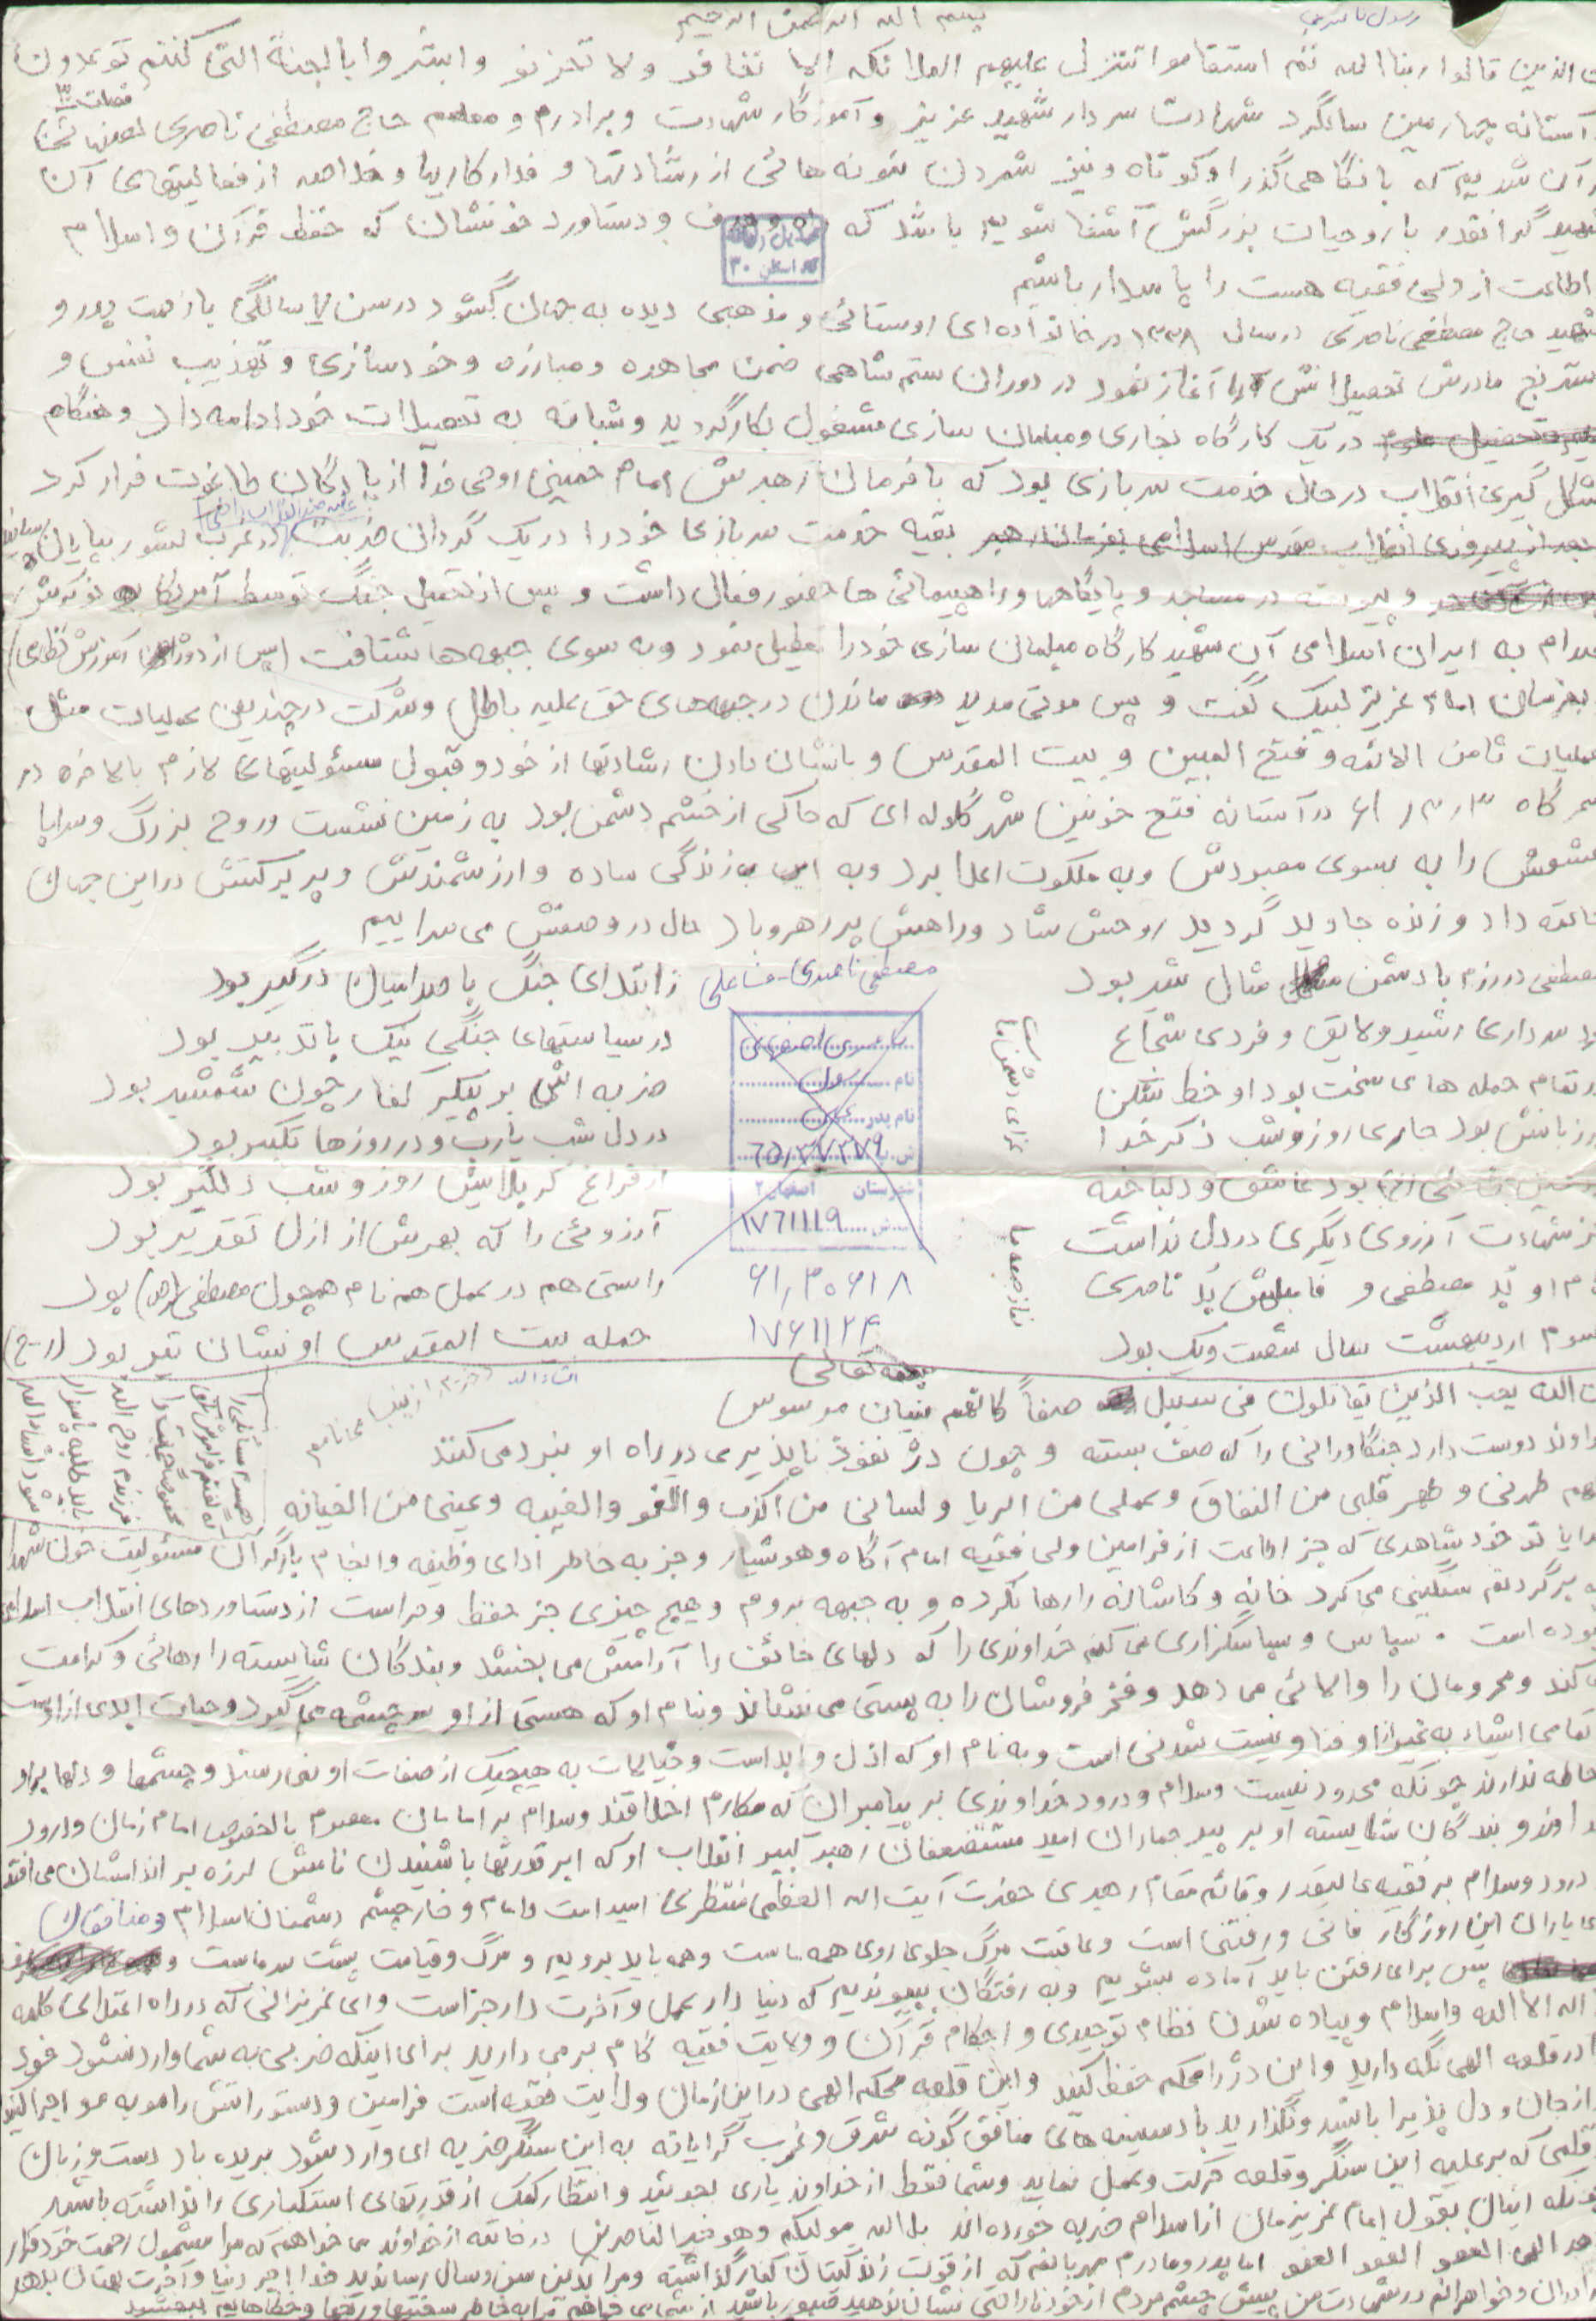 بسم الله الرحمن الرحیم
الذین قالوا ربنا الله ثم استقاموا تتنزل علیهم الملائکه الا تخافو ولا تحزنو وابشروا بالجنة التی کنتم توعدون
آستانه چهارمین سالگرد شهادت سردار شهید عزیز و آموزگار شهادت و برادرم و معلم حاج مصطفی ناصری
آن شدیم که با نگاهی گذرا و کوتاه و نیز شمردن نمونه هائی از رشادتها و فداکاریها و خلاصه از فعالیتهای آن
گرانقدر با روحیات بزرگش آشنا شویم باشد که راه و هدف و دستاورد خونشان که حفظ قرآن و اسلام
اطاعت از ولی فقیه هست را پاسدار باشیم
شهید حاج مصطفی ناصری در سال ۱۳۳۸ در خانواده ای روستائی و مذهبی دیده به جهان گشود در سن ۷ سالگی با زحمت پدر و
مادرش تحصیلاتش را آغاز نمود در دوران ستم شاهی ضمن مجاهده و مبارزه و خودسازی و تهذیب نفس و
در یک کارگاه نجاری و مبلمان سازی مشغول بکار گردید و شبانه به تحصیلات خود ادامه داد و هنگام
شکل گیری انقلاب در حال خدمت سربازی بود که با فرمان رهبرش امام خمینی روحی فدا از پادگان طاغوت فرار کرد
بعد از پیروزی انقلاب مقدس اسلامی بفرمان رهبر بقیه خدمت سربازی خود را در یک گردان ضربت در غرب کشور بپایان رسانید
و پیوسته در مساجد و پایگاهها و راهپیمائی ها حضور فعال داشت و پس از تحمیل جنگ توسط آمریکا به نوکرش
صدام به ایران اسلامی آن شهید کارگاه مبلمان سازی خود را تعطیل نمود و به سوی جبهه ها شتافت (پس از دوران آموزش نظامی)
بفرمان امام عزیز لبیک گفت و پس مدتی مدید ماندن در جبهه های حق علیه باطل و شرکت در چندین عملیات مثل
عملیات ثامن الائمه و فتح المبین و بیت المقدس و با نشان دادن رشادتها از خود و قبول مسئولیتهای لازم بالاخره در
سحرگاه ۶۱/۲/۳ در آستانه فتح خونین شهر گلوله ای که حاکی از خشم دشمن بود به زمین نشست و روح بزرگ و سراپا
عشقش را به بسوی معبودش و به ملکوت اعلا برد و به این زندگی ساده و ارزشمندش و پربرکتش در این جهان
خاتمه داد و زنده جاوید گردید روحش شاد و راهش پر رهرو باد حال در وصفش می سراییم
مصطفی در رزم با دشمن مثال شیر بود
ز ابتدای جنگ با صدامیان درگیر بود
سرداری رشید و لایق و فردی شجاع
در سیاستهای جنگی نیک با تدبیر بود
در تمام حمله های سخت بود او خط شکن
ضربه اش بر پیکر کفار چون شمشیر بود
بر زبانش بود جاری روز و شب ذکر خدا
در دل شب یارب و در روزها تکبیر بود
بود عاشق و دلباخته
از فراغ کربلایش روز و شب دلگیر بود
جز شهادت آرزوی دیگری در دل نداشت
آرزوئی را که بهرش از ازل تقدیر بود
نام او بد مصطفی و فامیلش بد ناصری
راستی هم در عمل هم نام همچون مصطفی (ص) بود
سوم اردیبهشت سال شصت و یک بود
حمله بیت المقدس او نشان تیر بود
مصطفی ناصری
نام
نام پدر
شهرستان اصفهان ۲
۱۷۶۱۱۱۹
۶۱٫۳۰۶۱۸
۱۷۶۱۱۲۴
بسمه تعالی
ان الله یحب الذین یقاتلون فی سبیل صفاً کانهم بنیان مرصوص
خداوند دوست دارد جنگاورانی را که صف بسته و چون دژ نفوذ ناپذیری در راه او نبرد می کنند
اللهم طهرنی و طهر قلبی من النفاق و عملی من الریا و لسانی من الکذب و اللغو والغیبه و عینی من الخیانه
خدایا تو خود شاهدی که جز اطاعت از فرامین ولی فقیه امام آگاه و هوشیار و جز به خاطر ادای وظیفه و انجام بار گران مسئولیت خون شهدا
که بر گردنم سنگینی می کرد خانه و کاشانه را رها نکرده و به جبهه بروم و هیچ چیزی جز حفظ و حراست از دستاوردهای انقلاب اسلامی
نبوده است . سپاس و سپاسگزاری می کنم خداوندی را که دلهای خائف را آرامش می بخشد و بندگان شایسته را رهائی و کرامت
می کند و محرومان را والائی می دهد و فخر فروشان را به پستی می نشاند و بنام او که هستی از او سرچشمه می گیرد و حیات ابدی از اوست
تمامی اشیاء به غیر از او فنا و نیست شدنی است و به نام او که ازل و ابد است و خیالات به هیچیک از صفات او نمی رسند و چشمها و دلها بر او
احاطه ندارند چونکه محدود نیست و سلام و درود خداوندی بر پیامبران که مکارم اخلاقند و سلام بر امامان معصوم بالخصوص امام زمان و درود
خداوند و بندگان شایسته او بر پیر جماران امید مستضعفان رهبر کبیر انقلاب او که ابر قدرتها با شنیدن نامش لرزه بر اندامشان می افتد
درود و سلام بر فقیه عالیقدر و قائم مقام رهبری حضرت آیت الله العظمی منتظری امید امت و امام و خار چشم دشمنان اسلام و منافقان
ای یاران این روزگار فانی و رفتنی است و عاقبت مرگ جلوی روی همه ماست و همه باید برویم و مرگ و قیامت پشت سر ماست
پس برای رفتن باید آماده بشویم و به رفتگان بپیوندیم که دنیا دار عمل و آخرت دار جزاست و ای عزیزانی که در راه اعتلای کلمه
اله الا الله و اسلام و پیاده شدن نظام توحیدی و احکام قرآن و ولایت فقیه گام برمی دارید برای اینکه ضربی به شما وارد نشود خود
را در قلعه الهی نگه دارید و این دژ را محکم حفظ کنید و این قلعه محکم الهی در این زمان ولایت فقیه است فرامین و دستوراتش را مو به مو اجرا کنید
از جان و دل پذیرا باشید و نگذارید با دسیسه های منافق گونه شرق و غرب گرایانه به این سنگر ضربه ای وارد شود بریده باد دست و زبان
قلمی که بر علیه این سنگر و قلعه حرکت و عمل نماید و شما فقط از خداوند یاری بجوئید و انتظار کمک از قدرتهای استکباری را نداشته باشید
چونکه اینان بقول امام عزیزمان از اسلام ضربه خورده اند بل الله مولیکم و هو خیر الناصرین در خاتمه از خداوند می خواهم که مرا مشمول رحمت خود قرار
دهد الهی العفو العفو العفو اما پدر و مادرم مهربانم که از قوت زندگیتان کنار گذاشته و مرا بدین سن و سال رساندید خدا اجر دنیا و آخرت بهتان بدهد
برادران و خواهرانم در شهادت من پیش چشم مردم از خود ناراحتی نشان ندهید صبور باشید از شما می خواهم مرا به خاطر سختیها و رنجها و خطاهایم ببخشید